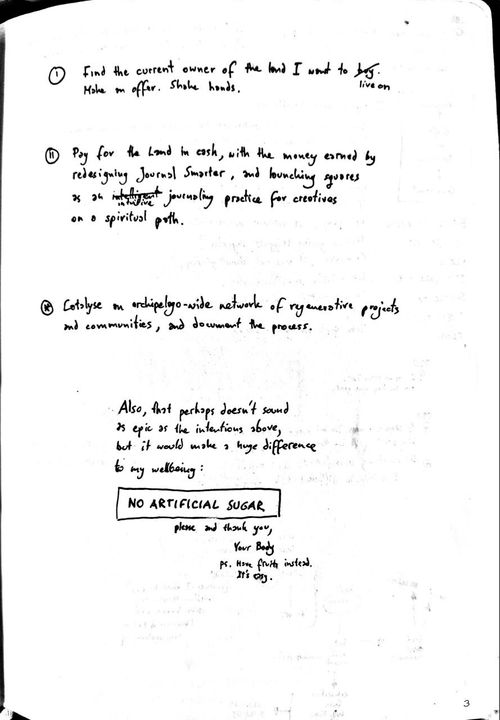 I Find the current owner of the land I want to buy.
live on
Make an offer. Shake hands.
II Pay for the Land in cash, with the money earned by
redesigning Journal Smarter, and launching squares
as an intelligent journaling practice for creatives
intuitive
on a spiritual path.
Catalyse an archipelago-wide network of regenerative projects
and communities, and document the process.
Also, that perhaps doesn't sound
as epic as the intentions above,
but it would make a huge difference
to my wellbeing:
NO ARTIFICIAL SUGAR
please and thank you,
Your Body
ps. Have fruits instead.
It's easy.
3